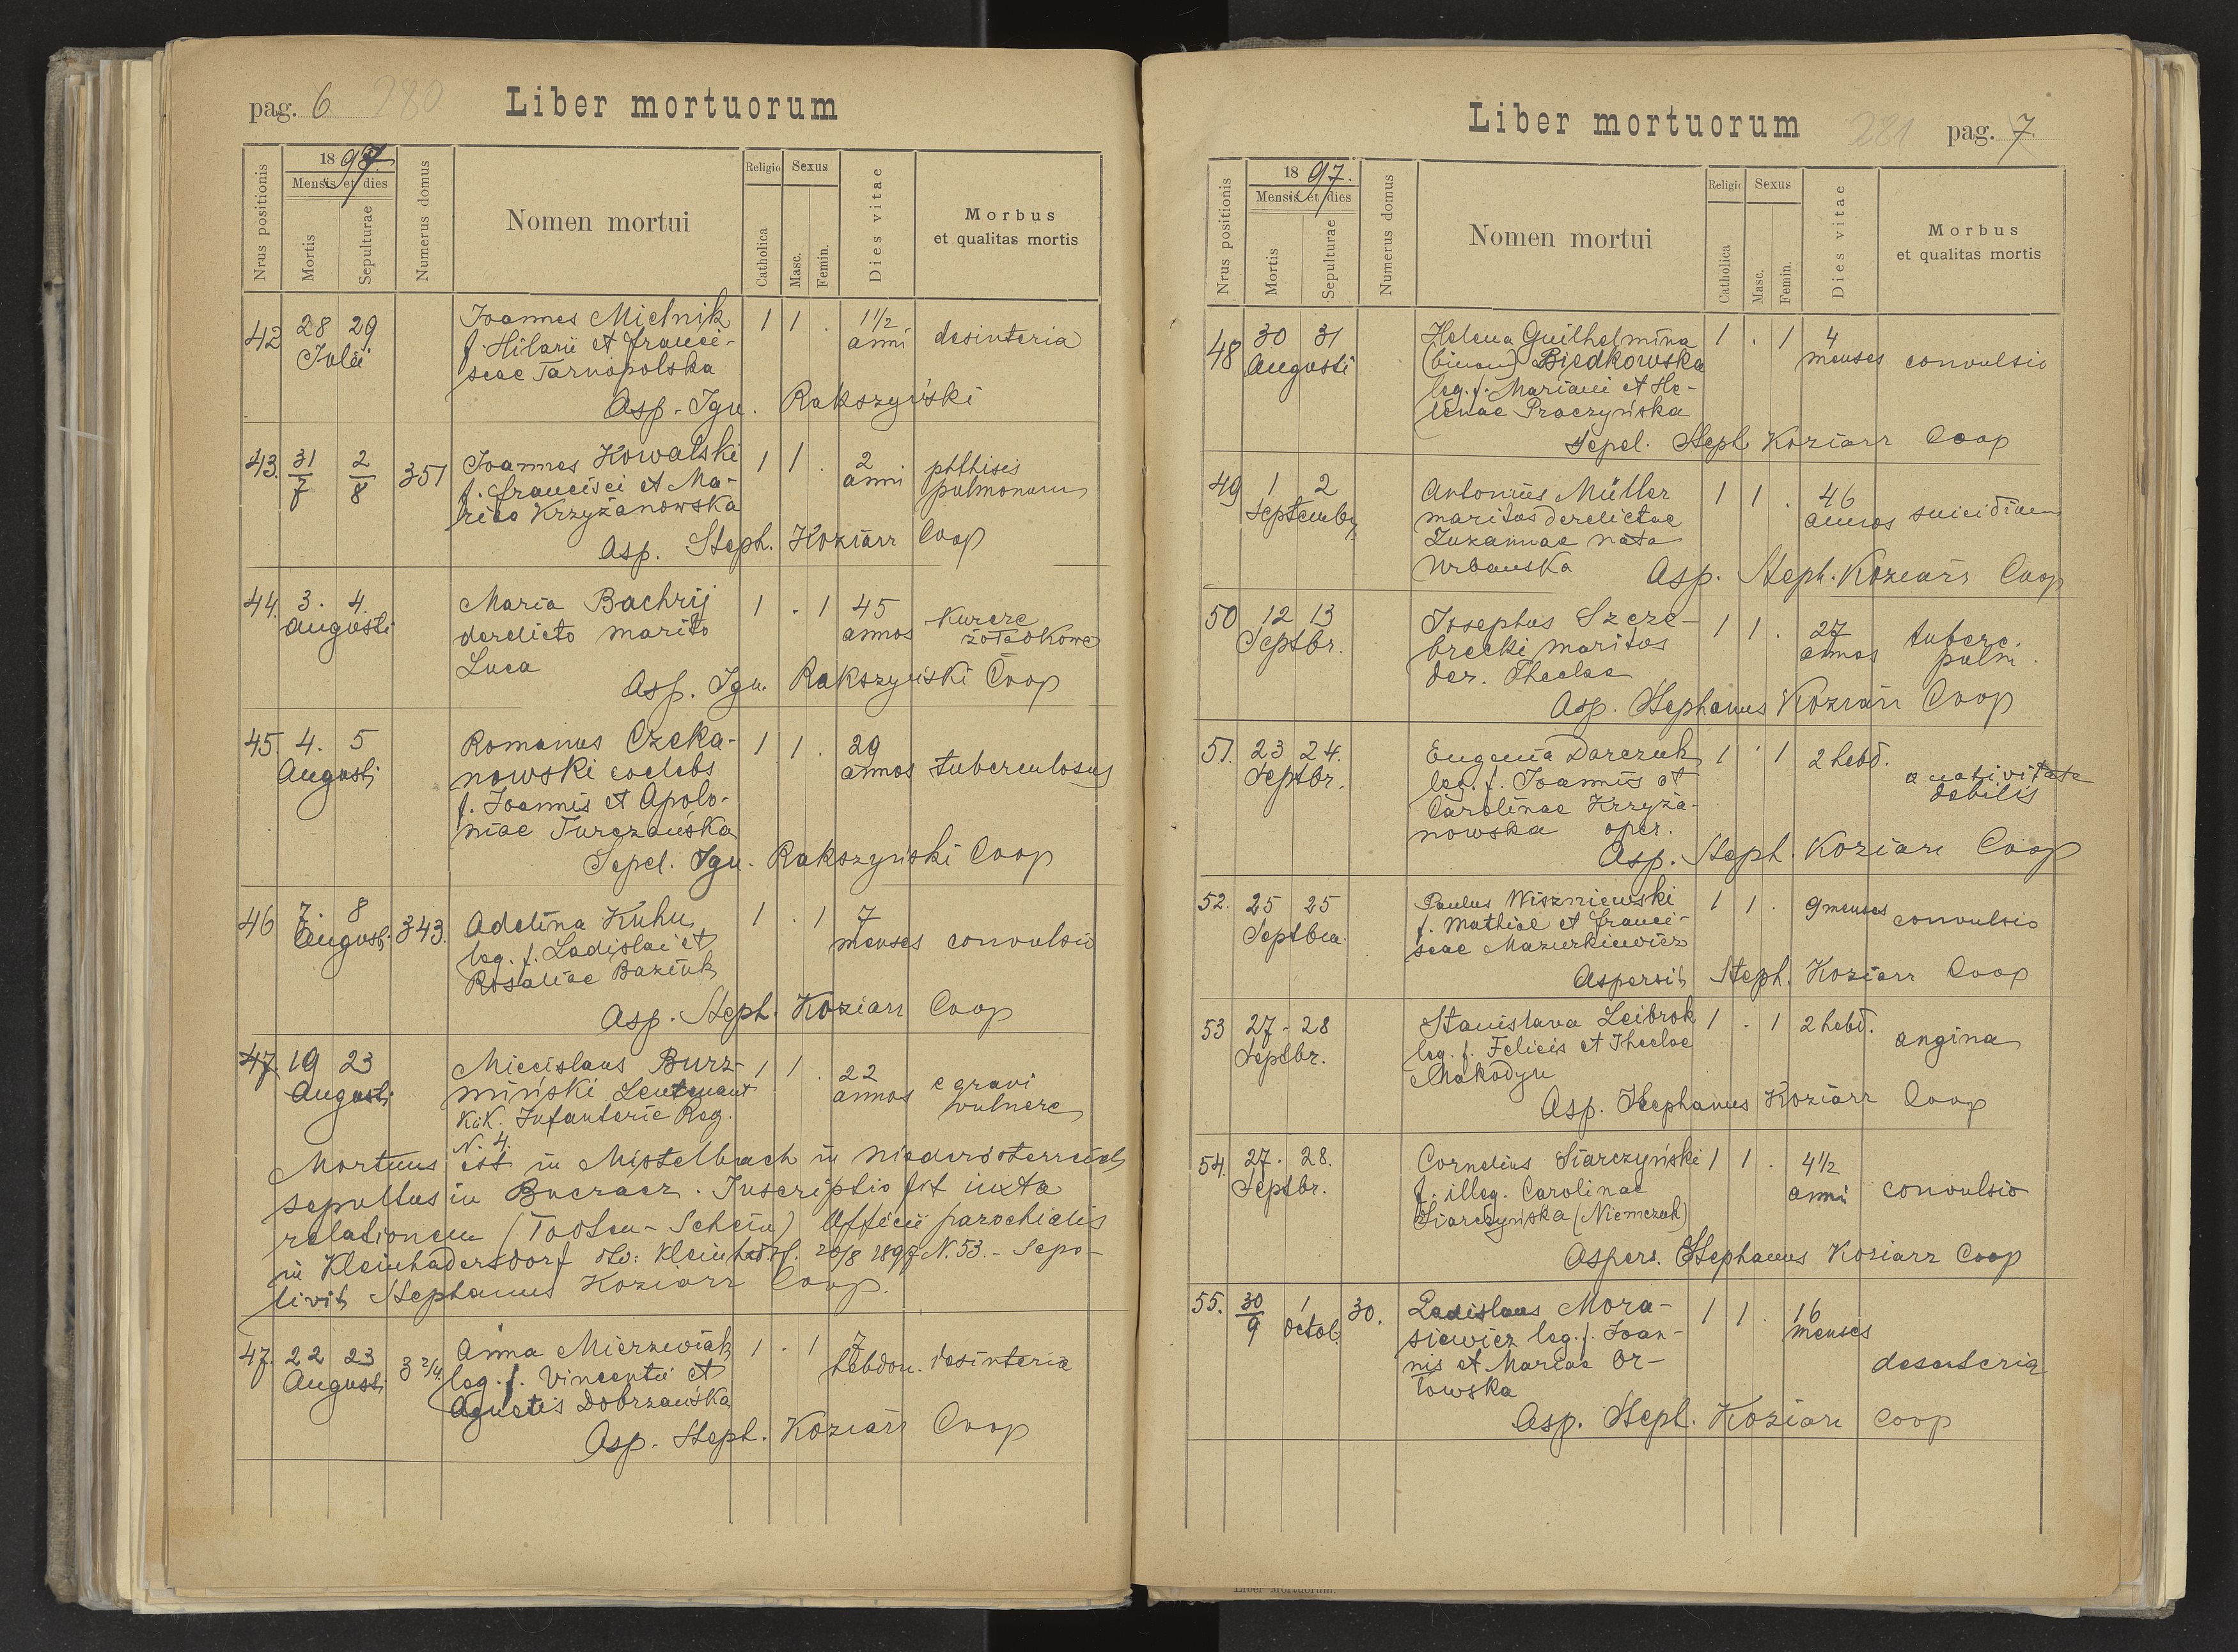 pag. 6 280 Liber mortuorum
Nrus positionis
1897.
Mensis et dies
Mortis
Sepulturae
Numerus domus
Nomen mortui
Religio
Catholica
Sexus
Masc.
Femin.
Dies vitae
Morbus
et qualitas mortis
42 28 29 Joannes Mielnik 1 1 . 1 1/2 desinteria
Julii f. Hilarii et Franci- anni
scae Tarnopolska
Asp. Ign. Rakszyński
43. 31/7 2/8 351 Joannes Kowalski 1 1 . 2 phthisis
f. Francisci et Ma- anni pulmonum
riae Krzyżanowska
Asp. Steph. Koziarz Coop
44. 3. 4. Maria Bachrij 1 . 1 45 Kurcze
Augusti derelicto marito annos żołądkowe
Luca
Asp. Ign. Rakszyński Coop
45. 4. 5 Romanus Czeka- 1 1 . 29
Augusti nowski coelebs annos tuberculosus
f. Joannis et Apolo-
niae Turczańska
Sepel. Ign. Rakszyński Coop
46 7. 8 343. Adelina Kuhn 1 . 1 7
Augusti leg. f. Ladislai et menses convulsio
Rosaliae Baziuk
Asp. Steph. Koziarz Coop
47. 19 23 Miecislaus Burz- 1 1 . 22 e gravi
Augusti miński Leutenant annos vulnere
K.K. Infanterie Reg.
N. 4.
Mortuus est in Mistelbach in Niederösterreich
sepultus in Buczacz. Inscriptio fit iuxta
relationem (Todten-Schein) Officii parochialis
in Kleinhadersdorf dto: Kleinhadrsf. 20/8 1897 N. 53. - Sepe-
livit Stephanus Koziarz Coop.
47. 22 23 3 2/4 Anna Mierzwiak 1 . 1 7
Augusti leg. f. Vincentii et hebdom. desinteria
Agnetis Dobrzańska
Asp. Steph. Koziarz Coop
Liber mortuorum 281 pag. 7
Nrus positionis
1897.
Mensis et dies
Mortis
Sepulturae
Numerus domus
Nomen mortui
Religio
Catholica
Sexus
Masc.
Femin.
Dies vitae
Morbus
et qualitas mortis
48 30 31 Helena Guilhelmina 1 . 1 4
Augusti (binom) Biedkowska menses convulsio
leg. f. Mariani et He-
lenae Praczyńska
Sepel. Steph Koziarz Coop
49 1 2 Antonius Müller 1 1 . 46
Septembr maritus derelictae annos suicidium
Zuzannae nata
Urbanska Asp. Steph. Koziarz Coop
50 12 13 Josephus Szcze- 1 1 . 27 tuberc.
Septbr. brecki maritus annos pulm.
der. Theclae
Asp. Stephanus Koziarz Coop
51. 23 24. Eugenia Darczuk 1 . 1 2 hebd. a nativitate
Septbr. leg. f. Joannis et debilis
Carolinae Krzyża-
nowska oper.
Asp. Steph. Koziarz Coop
52. 25 25 Paulus Wiszniewski 1 1 . 9 menses convulsio
Septbra. f. Mathiae et Franci-
scae Mazurkiewicz
Aspersit Steph. Koziarz Coop
53 27 - 28 Stanislava Leibrok 1 . 1 2 hebd. angina
Septbr. leg. f. Felicis et Theclae
Makodyn
Asp. Stephanus Koziarz Coop
54. 27. 28. Cornelius Siarczyński 1 1 . 4 1/2
Septbr. f. illeg. Carolinae anni convulsio
Siarczyńska (Niemczuk)
Aspers. Stephanus Koziarz Coop
55. 30/9 1 30. Ladislaus Mora- 1 1 . 16
Octob. siewicz leg. f. Joan- menses
nis et Mariae Or- desenteria
łowska
Asp. Steph. Koziarz Coop
Liber mortuorum.